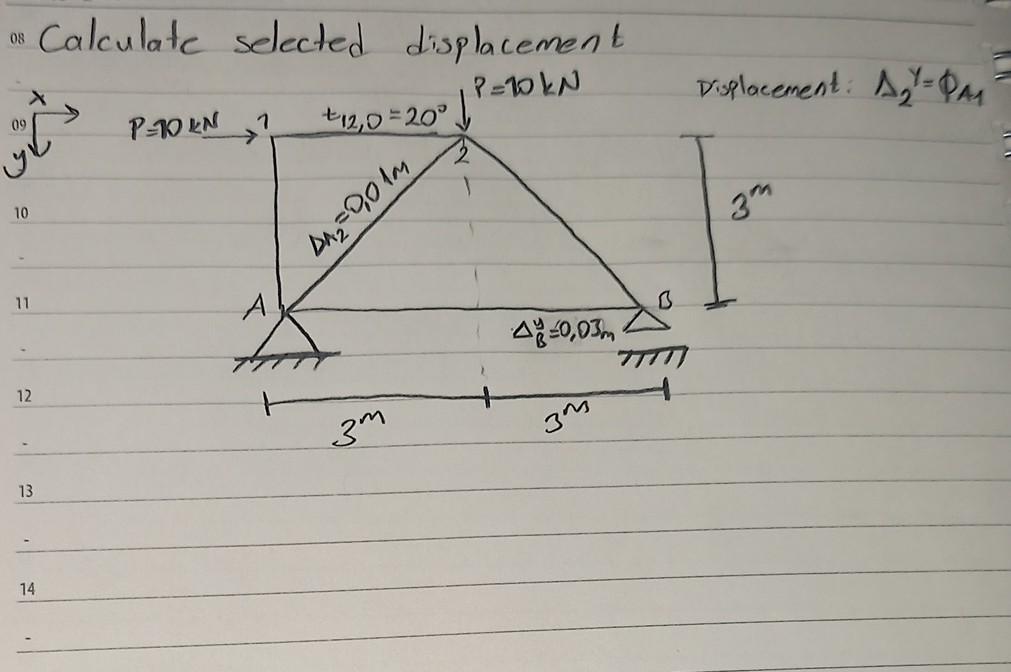 08 Calculate selected displacement
P=10 kN Displacement: Δ₂ʸ=ϕA1
x
09 P=10 kN 1 t12,0=20°
y 2
ΔA2=0,01m
10 3m
11 A B
ΔBʸ=0,03m
12
3m 3m
13
14